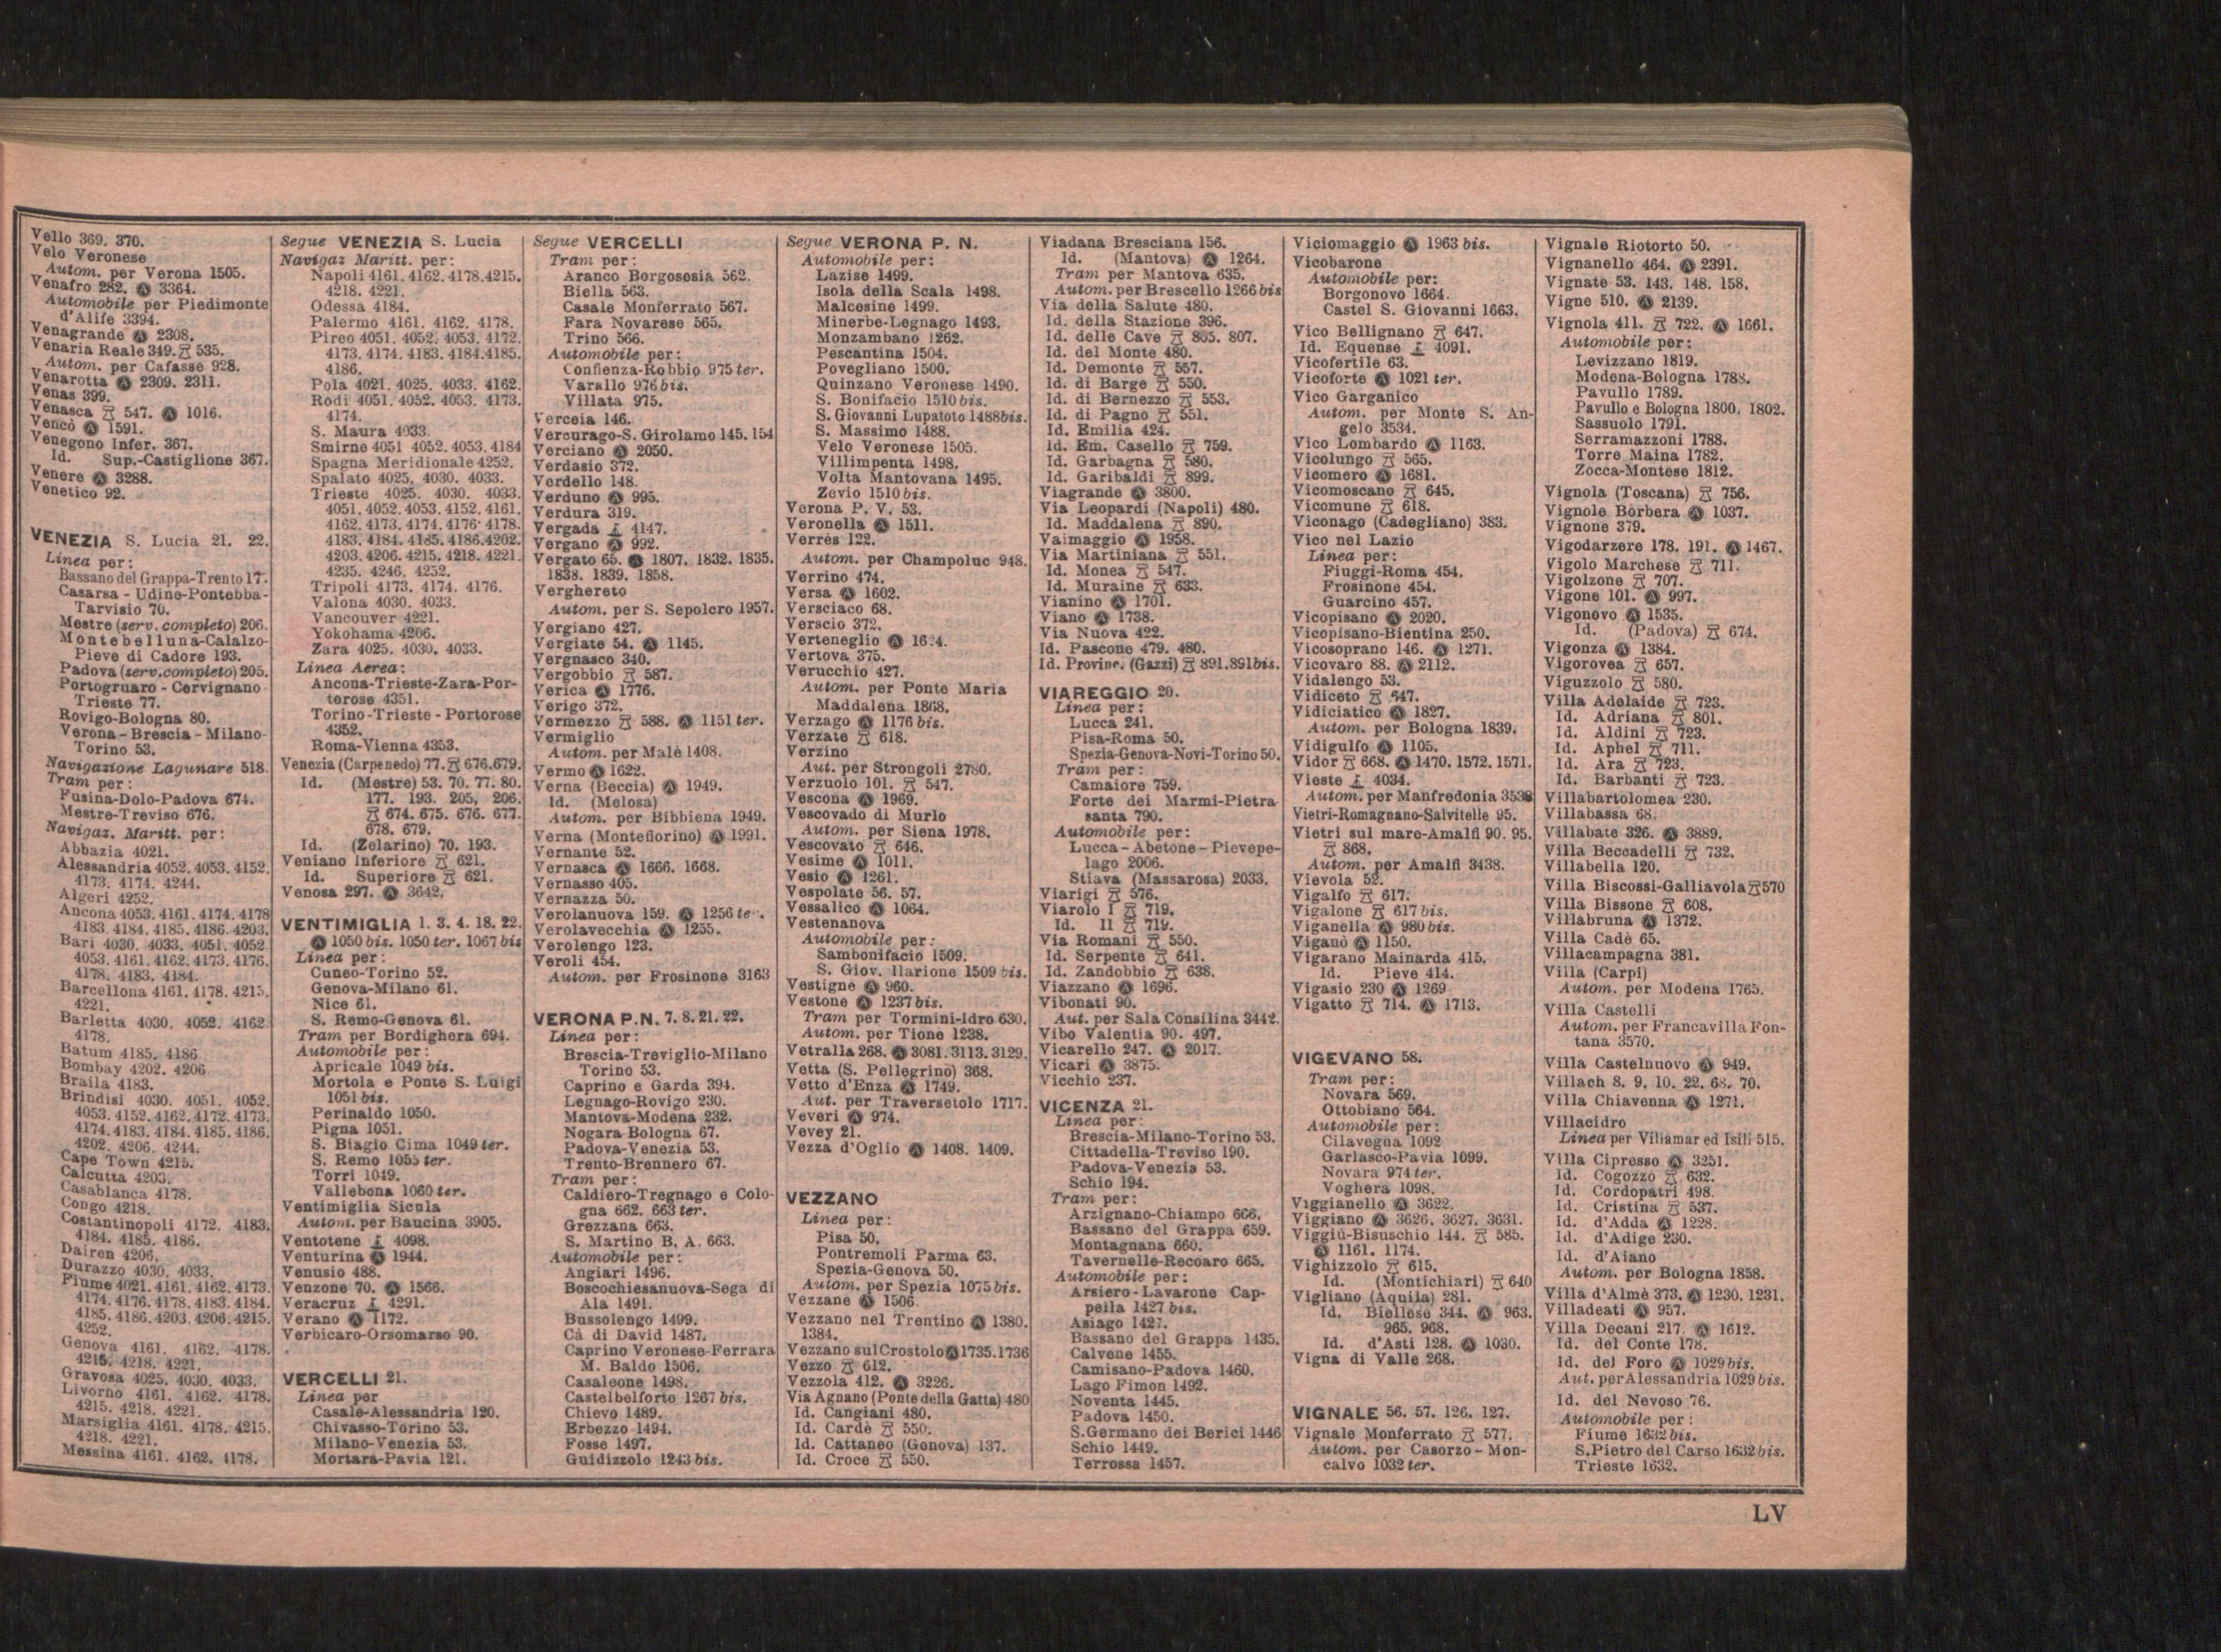 Vello 369. 370.
Velo Veronese
Autom. per Verona 1505.
Venafro 282. Ⓐ 3364.
Automobile per Piedimonte
d'Alife 3394.
Venagrande Ⓐ 2308.
Venaria Reale 349. 535.
Autom. per Cafasse 928.
Venarotta Ⓐ 2309. 2311.
Venas 399.
Venasca 547. Ⓐ 1016.
Vencò Ⓐ 1591.
Venegono Infer. 367.
Id. Sup.-Castiglione 367.
Venere Ⓐ 3288.
Venetico 92.
VENEZIA S. Lucia 21. 22.
Linea per:
Bassano del Grappa-Trento
Casarsa - Udine-Pontebba-
Tarvisio 70.
Mestre (serv. completo) 206.
Montebelluna-Calalzo-
Pieve di Cadore 193.
Padova (serv. completo) 205.
Portogruaro - Cervignano
Trieste 77.
Rovigo-Bologna 80.
Verona - Brescia - Milano-
Torino 53.
Navigazione Lagunare 518.
Tram per:
Fusina-Dolo-Padova 674.
Mestre-Treviso 676.
Navigaz. Maritt. per:
Abbazia 4021.
Alessandria 4052. 4053. 4152.
4173. 4174. 4244.
Algeri 4252.
Ancona 4053. 4161. 4174. 4178
4183. 4184. 4185. 4186. 4203.
Bari 4030. 4033. 4051. 4052.
4053. 4161. 4162. 4173. 4176.
4178. 4183. 4184.
Barcellona 4161. 4178. 4215.
4221.
Barletta 4030. 4052. 4162
4178.
Batum 4185. 4186
Bombay 4202. 4206
Braila 4183.
Brindisi 4030. 4051. 4052.
4053. 4152. 4162. 4172. 4173.
4174. 4183. 4184. 4185. 4186.
4202. 4206. 4244.
Cape Town 4215.
Calcutta 4203.
Casablanca 4178.
Congo 4218.
Costantinopoli 4172. 4183.
4184. 4185. 4186.
Dairen 4206.
Durazzo 4030. 4033.
Fiume 4021. 4161. 4162. 4173.
4174. 4176. 4178. 4183. 4184.
4185. 4186. 4203. 4206. 4215.
4252.
Genova 4161. 4162. 4178.
4215. 4218. 4221.
Gravosa 4025. 4030. 4033.
Livorno 4161. 4162. 4178.
4215. 4218. 4221.
Marsiglia 4161. 4178. 4215.
4218. 4221.
Messina 4161. 4162. 4178.
Segue VENEZIA S. Lucia
Navigaz Maritt. per:
Napoli 4161. 4162. 4178. 4215.
4218. 4221.
Odessa 4184.
Palermo 4161. 4162. 4178.
Pireo 4051. 4052. 4053. 4172.
4173. 4174. 4183. 4184. 4185.
4186.
Pola 4021. 4025. 4033. 4162.
Rodi 4051. 4052. 4053. 4173.
4174.
S. Maura 4033.
Smirne 4051 4052. 4053. 4184
Spagna Meridionale 4252.
Spalato 4025. 4030. 4033.
Trieste 4025. 4030. 4033.
4051. 4052. 4053. 4152. 4161.
4162. 4173. 4174. 4176. 4178.
4183. 4184. 4185. 4186. 4202.
4203. 4206. 4215. 4218. 4221.
4235. 4246. 4252.
Tripoli 4173. 4174. 4176.
Valona 4030. 4033.
Vancouver 4221.
Yokohama 4206.
Zara 4025. 4030. 4033.
Linea Aerea:
Ancona-Trieste-Zara-Por-
terose 4351.
Torino-Trieste - Portorose
4352.
Roma-Vienna 4353.
Venezia (Carpenedo) 77. 676. 679.
Id. (Mestre) 53. 70. 77. 80.
177. 193. 205, 206.
674. 675. 676. 677.
678. 679.
Id. (Zelarino) 70. 193.
Veniano Inferiore 621.
Id. Superiore 621.
Venosa 297. Ⓐ 3642.
VENTIMIGLIA 1. 3. 4. 18. 22.
Ⓐ 1050 bis. 1050 ter. 1067 bis
Linea per:
Cuneo-Torino 52.
Genova-Milano 61.
Nice 61.
S. Remo-Genova 61.
Tram per Bordighera 694.
Automobile per:
Apricale 1049 bis.
Mortola e Ponte S. Luigi
1051 bis.
Perinaldo 1050.
Pigna 1051.
S. Biagio Cima 1049 ter.
S. Remo 1055 ter.
Torri 1049.
Vallebona 1060 ter.
Ventimiglia Sicula
Autom. per Baucina 3905.
Ventotene 4098.
Venturina Ⓐ 1944.
Venusio 488.
Venzone 70. Ⓐ 1566.
Veracruz 4291.
Verano Ⓐ 1172.
Verbicaro-Orsomarso 90.
VERCELLI 21.
Linea per
Casale-Alessandria 120.
Chivasso-Torino 53.
Milano-Venezia 53.
Mortara-Pavia 121.
Segue VERCELLI
Tram per:
Aranco Borgosesia 562.
Biella 563.
Casale Monferrato 567.
Fara Novarese 565.
Trino 566.
Automobile per:
Confienza-Robbio 975 ter.
Varallo 976 bis.
Villata 975.
Verceia 146.
Vercurago-S. Girolamo 145. 154
Verciano Ⓐ 2050.
Verdasio 372.
Verdello 148.
Verduno Ⓐ 995.
Verdura 319.
Vergada 4147.
Vergano Ⓐ 992.
Vergato 65. Ⓐ 1807. 1832. 1835.
1838. 1839. 1858.
Verghereto
Autom. per S. Sepolcro 1957.
Vergiano 427.
Vergiate 54. Ⓐ 1145.
Vergnasco 340.
Vergobbio 587.
Verica Ⓐ 1776.
Verigo 372.
Vermezzo 588. Ⓐ 1151 ter.
Vermiglio
Autom. per Malè 1408.
Vermo Ⓐ 1622.
Verna (Beccia) Ⓐ 1949.
Id. (Melosa)
Autom. per Bibbiena 1949.
Verna (Montefiorino) Ⓐ 1991.
Vernante 52.
Vernasca Ⓐ 1666. 1668.
Vernasso 405.
Vernazza 50.
Verolanuova 159. Ⓐ 1256
Verolavecchia Ⓐ 1255.
Verolengo 123.
Veroli 454.
Autom. per Frosinone 3163
VERONA P.N. 7. 8. 21. 22.
Linea per:
Brescia-Treviglio-Milano
Torino 53.
Caprino e Garda 394.
Legnago-Rovigo 230.
Mantova-Modena 232.
Nogara-Bologna 67.
Padova-Venezia 53.
Trento-Brennero 67.
Tram per:
Caldiero-Tregnago e Colo-
gna 662. 663 ter.
Grezzana 663.
S. Martino B. A. 663.
Automobile per:
Angiari 1496.
Boscochiesanuova-Sega di
Ala 1491.
Bussolengo 1499.
Cà di David 1487.
Caprino Veronese-Ferrara
M. Baldo 1506.
Casaleone 1498.
Castelbelforte 1267 bis.
Chievo 1489.
Erbezzo 1494.
Fosse 1497.
Guidizzolo 1243 bis.
Segue VERONA P. N.
Automobile per:
Lazise 1499.
Isola della Scala 1498.
Malcesine 1499.
Minerbe-Legnago 1493.
Monzambano 1262.
Pescantina 1504.
Povegliano 1500.
Quinzano Veronese 1490.
S. Bonifacio 1510 bis.
S. Giovanni Lupatoto 1488bis.
S. Massimo 1488.
Velo Veronese 1505.
Villimpenta 1498.
Volta Mantovana 1495.
Zevio 1510 bis.
Verona P. V. 53.
Veronella Ⓐ 1511.
Verrès 122.
Autom. per Champoluc 948.
Verrino 474.
Versa Ⓐ 1602.
Versciaco 68.
Verscio 372.
Verteneglio Ⓐ
Vertova 375.
Verucchio 427.
Autom. per Ponte Maria
Maddalena 1868.
Verzago Ⓐ 1176 bis.
Verzate 618.
Verzino
Aut. per Strongoli 2780.
Verzuolo 101. 547.
Vescona Ⓐ 1969.
Vescovado di Murlo
Autom. per Siena 1978.
Vescovato 646.
Vesime Ⓐ 1011.
Vesio Ⓐ 1261.
Vespolate 56. 57.
Vessalico Ⓐ 1064.
Vestenanova
Automobile per:
Sambonifacio 1509.
S. Giov. Ilarione 1509 bis.
Vestignè Ⓐ 960.
Vestone Ⓐ 1237 bis.
Tram per Tormini-Idro 630.
Autom. per Tione 1238.
Vetralla 268. Ⓐ 3081. 3113. 3129.
Vetta (S. Pellegrino) 368.
Vetto d'Enza Ⓐ 1749.
Aut. per Traversetolo 1717.
Veveri Ⓐ 974.
Vevey 21.
Vezza d'Oglio Ⓐ 1408. 1409.
VEZZANO
Linea per:
Pisa 50.
Pontremoli Parma 63.
Spezia-Genova 50.
Autom. per Spezia 1075 bis.
Vezzane Ⓐ 1506.
Vezzano nel Trentino Ⓐ 1380.
1384.
Vezzano sul Crostolo Ⓐ 1735. 1736
Vezzo 612.
Vezzola 412. Ⓐ 3226.
Via Agnano (Ponte della Gatta) 480
Id. Cangiani 480.
Id. Cardè 550.
Id. Cattaneo (Genova) 137.
Id. Croce 550.
Viadana Bresciana 156.
Id. (Mantova) Ⓐ 1264.
Tram per Mantova 635.
Autom. per Brescello 1266 bis
Via della Salute 480.
Id. della Stazione 396.
Id. delle Cave 805. 807.
Id. del Monte 480.
Id. Demonte 557.
Id. di Barge 550.
Id. di Bernezzo 553.
Id. di Pagno 551.
Id. Emilia 424.
Id. Em. Casello 759.
Id. Garbagna 580.
Id. Garibaldi 899.
Viagrande Ⓐ 3800.
Via Leopardi (Napoli) 480.
Id. Maddalena 890.
Vaimaggio Ⓐ 1958.
Via Martiniana 551.
Id. Monea 547.
Id. Muraine 633.
Vianino Ⓐ 1701.
Viano Ⓐ 1738.
Via Nuova 422.
Id. Pascone 479. 480.
Id. Provinc. (Gazzi) 891. 891bis.
VIAREGGIO 20.
Linea per:
Lucca 241.
Pisa-Roma 50.
Spezia-Genova-Novi-Torino 50.
Tram per:
Camaiore 759.
Forte dei Marmi-Pietra-
santa 790.
Automobile per:
Lucca - Abetone - Pievepe-
lago 2006.
Stiava (Massarosa) 2033.
Viarigi 576.
Viarolo I 719.
Id. II 719.
Via Romani 550.
Id. Serpente 641.
Id. Zandobbio 638.
Viazzano Ⓐ 1696.
Vibonati 90.
Aut. per Sala Consilina 3442.
Vibo Valentia 90. 497.
Vicarello 247. Ⓐ 2017.
Vicari Ⓐ 3875.
Vicchio 237.
VICENZA 21.
Linea per:
Brescia-Milano-Torino 53.
Cittadella-Treviso 190.
Padova-Venezia 53.
Schio 194.
Tram per:
Arzignano-Chiampo 666.
Bassano del Grappa 659.
Montagnana 660.
Tavernelle-Recoaro 665.
Automobile per:
Arsiero - Lavarone Cap-
pella 1427 bis.
Asiago 1427.
Bassano del Grappa 1435.
Calvene 1455.
Camisano-Padova 1460.
Lago Fimon 1492.
Noventa 1445.
Padova 1450.
S.Germano dei Berici 1446
Schio 1449.
Terrossa 1457.
Viciomaggio Ⓐ 1963 bis.
Vicobarone
Automobile per:
Borgonovo 1664.
Castel S. Giovanni 1663.
Vico Bellignano 647.
Id. Equense 4091.
Vicofertile 63.
Vicoforte Ⓐ 1021 ter.
Vico Garganico
Autom. per Monte S. An-
gelo 3534.
Vico Lombardo Ⓐ 1163.
Vicolungo 565.
Vicomero Ⓐ 1681.
Vicomoscano 645.
Vicomune 618.
Viconago (Cadegliano) 383.
Vico nel Lazio
Linea per:
Fiuggi-Roma 454.
Frosinone 454.
Guarcino 457.
Vicopisano Ⓐ 2020.
Vicopisano-Bientina 250.
Vicosoprano 146. Ⓐ 1271.
Vicovaro 88. Ⓐ 2112.
Vidalengo 53.
Vidiceto 647.
Vidiciatico Ⓐ 1827.
Autom. per Bologna 1839.
Vidigulfo Ⓐ 1105.
Vidor 668. Ⓐ 1470. 1572. 1571.
Vieste 4034.
Autom. per Manfredonia 3538
Vietri-Romagnano-Salvitelle 95.
Vietri sul mare-Amalfi 90. 95.
868.
Autom. per Amalfi 3438.
Vievola 52.
Vigalfo 617.
Vigalone 617 bis.
Viganella Ⓐ 980 bis.
Viganò Ⓐ 1150.
Vigarano Mainarda 415.
Id. Pieve 414.
Vigasio 230 Ⓐ 1269
Vigatto 714. Ⓐ 1713.
VIGEVANO 58.
Tram per:
Novara 569.
Ottobiano 564.
Automobile per:
Cilavegna 1092
Garlasco-Pavia 1099.
Novara 974 ter.
Voghera 1098.
Viggianello Ⓐ 3622.
Viggiano Ⓐ 3626. 3627. 3631.
Viggiù-Bisuschio 144. 585.
Ⓐ 1161. 1174.
Vighizzolo 615.
Id. (Montichiari) 640
Vigliano (Aquila) 281.
Id. Biellese 344. Ⓐ 963.
965. 968.
Id. d'Asti 128. Ⓐ 1030.
Vigna di Valle 268.
VIGNALE 56. 57. 126. 127.
Vignale Monferrato 577.
Autom. per Casorzo - Mon-
calvo 1032 ter.
Vignale Riotorto 50.
Vignanello 464. Ⓐ 2391.
Vignate 53. 143. 148. 158.
Vigne 510. Ⓐ 2139.
Vignola 411. 722. Ⓐ 1661.
Automobile per:
Levizzano 1819.
Modena-Bologna 1788.
Pavullo 1789.
Pavullo e Bologna 1800. 1802.
Sassuolo 1791.
Serramazzoni 1788.
Torre Maina 1782.
Zocca-Montese 1812.
Vignola (Toscana) 756.
Vignole Borbera Ⓐ 1037.
Vignone 379.
Vigodarzere 178. 191. Ⓐ 1467.
Vigolo Marchese 711.
Vigolzone 707.
Vigone 101. Ⓐ 997.
Vigonovo Ⓐ 1535.
Id. (Padova) 674.
Vigonza Ⓐ 1384.
Vigorovea 657.
Viguzzolo 580.
Villa Adelaide 723.
Id. Adriana 801.
Id. Aldini 723.
Id. Aphel 711.
Id. Ara 723.
Id. Barbanti 723.
Villabartolomea 230.
Villabassa 68.
Villabate 326. Ⓐ 3889.
Villa Beccadelli 732.
Villabella 120.
Villa Biscossi-Galliavola 570
Villa Bissone 608.
Villabruna Ⓐ 1372.
Villa Cadè 65.
Villacampagna 381.
Villa (Carpi)
Autom. per Modena 1765.
Villa Castelli
Autom. per Francavilla Fon-
tana 3570.
Villa Castelnuovo Ⓐ 949.
Villach 8. 9. 10. 22. 68. 70.
Villa Chiavenna Ⓐ 1271.
Villacidro
Linea per Villamar ed Isili 515.
Villa Cipresso Ⓐ 3251.
Id. Cogozzo 632.
Id. Cordopatri 498.
Id. Cristina 537.
Id. d'Adda Ⓐ 1228.
Id. d'Adige 230.
Id. d'Aiano
Autom. per Bologna 1858.
Villa d'Almè 373. Ⓐ 1230. 1231.
Villadeati Ⓐ 957.
Villa Decani 217. Ⓐ 1612.
Id. del Conte 178.
Id. del Foro Ⓐ 1029 bis.
Aut. per Alessandria 1029 bis.
Id. del Nevoso 76.
Automobile per:
Fiume 1632 bis.
S.Pietro del Carso 1632 bis.
Trieste 1632.
LV